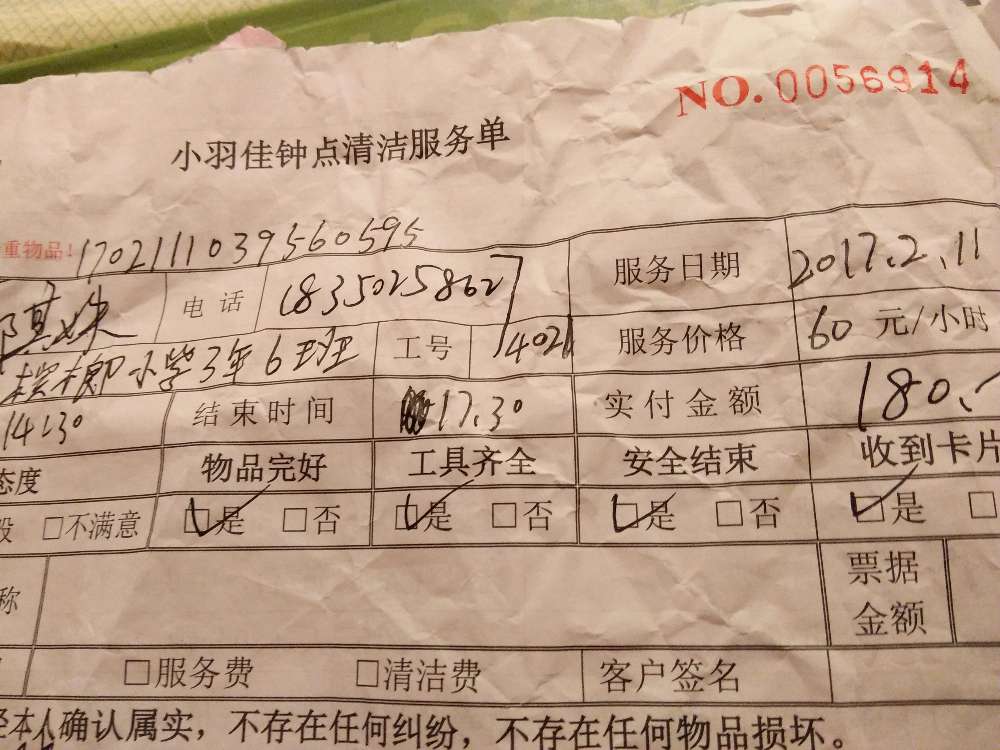 NO. 0056914
小羽佳钟点清洁服务单
重物品! 1702111039560595
电话 18350258627 服务日期 2017.2.11
小学3年6班 工号 14021 服务价格 60 元/小时
14:30 结束时间 17:30 实付金额 180.-
态度 物品完好 工具齐全 安全结束 收到卡片
□不满意 □是 □否 □是 □否 □是 □否 □是 □
称 票据金额
□服务费 □清洁费 客户签名
经本人确认属实，不存在任何纠纷，不存在任何物品损坏。